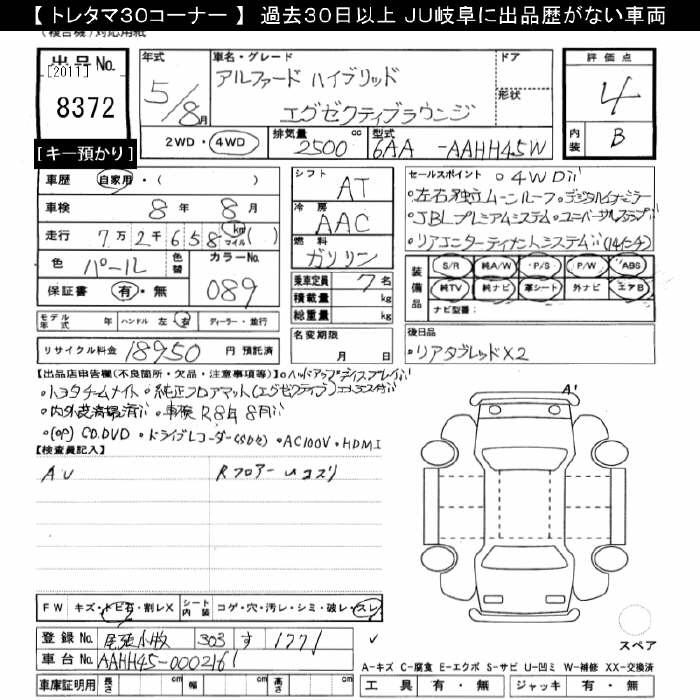 【 トレタマ30コーナー 】 過去30日以上 JU岐阜に出品歴がない車両
(複合機)対応用紙
出品No.
[2011]
8372
[キー預かり]
年式
5/8月
車名・グレード
アルファード ハイブリッド
エグゼクティブラウンジ
ドア
形状
2WD・4WD
排気量
2500 cc
型式
6AA -AAHH45W
評価点
4
内装
B
車歴 自家用・( )
車検 8年 8月
走行 7万2千658 km マイル( )
色 パール 色替 カラーNo. 089
保証書 有・無
モデル年式 年 ハンドル 左 右 ディーラー・並行
リサイクル料金 18950 円 預託済
シフト AT
冷房 AAC
燃料 ガソリン
乗車定員 7名
積載量 kg
総重量 kg
名変期限
月 日
セールスポイント ・4WD!!
・左右独立ムーンルーフ・デジタルインナーミラー
・JBLプレミアムシステム・ユーバーサルステップ!!
・リアエンターテイナメントシステム!!(14インチ)
装備品
S/R 純A/W P/S P/W ABS
純TV 純ナビ 革シート 外ナビ エアB
ナビ型番:
後日品
・リアタブレットX2
【出品店申告欄(不良箇所・欠品・注意事項等)】・ヘッドアップディスプレイ!!
・トヨタチームメイト・純正フロアマット(エグゼクティブ)
・内外装清掃済!!・車検 R8年8月!!
・(OP) CD.DVD・ドライブレコーダー・AC100V・HDMI
【検査員記入】
AU
Rフロアー uコスリ
FW キズ・トビ石・割レX シート内装 コゲ・穴・汚レ・シミ・破レ・スレ
登録No. 尾張小牧 303 す 1771
車台No. AAHH45-0002161
車庫証明用 長さ cm 幅 cm 高さ cm
A'
スペア
A-キズ C-腐食 E-エクボ S-サビ U-凹ミ W-補修 XX-交換済
工具 有・無 ジャッキ 有・無